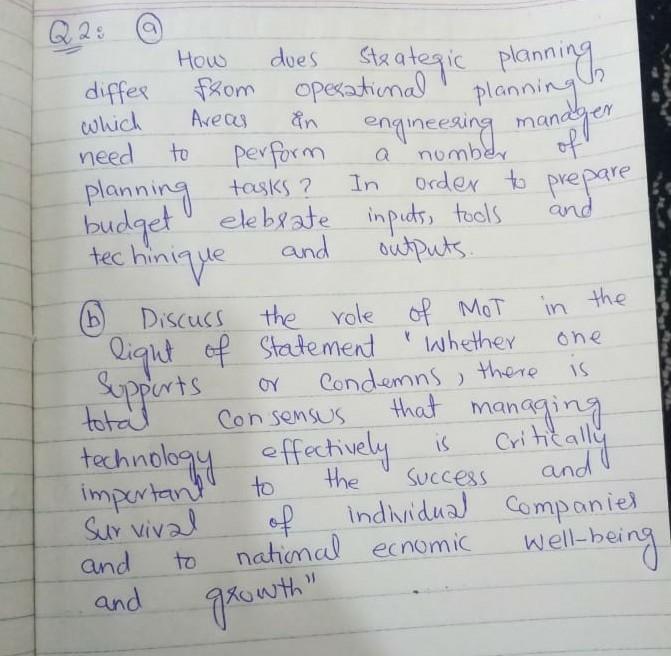 Q2: (a)
How does Strategic planning
differ from operational planning?
which Areas in engineering manager
need to perform a number of
planning tasks? In order to prepare
budget elebrate inputs, tools and
techinique and outputs.
(b) Discuss the role of MoT in the
light of Statement "Whether one
Supports or Condemns, there is
total Consensus that managing
technology effectively is Critically
important to the success and
Survival of individual Companies
and to national ecnomic well-being
and growth"